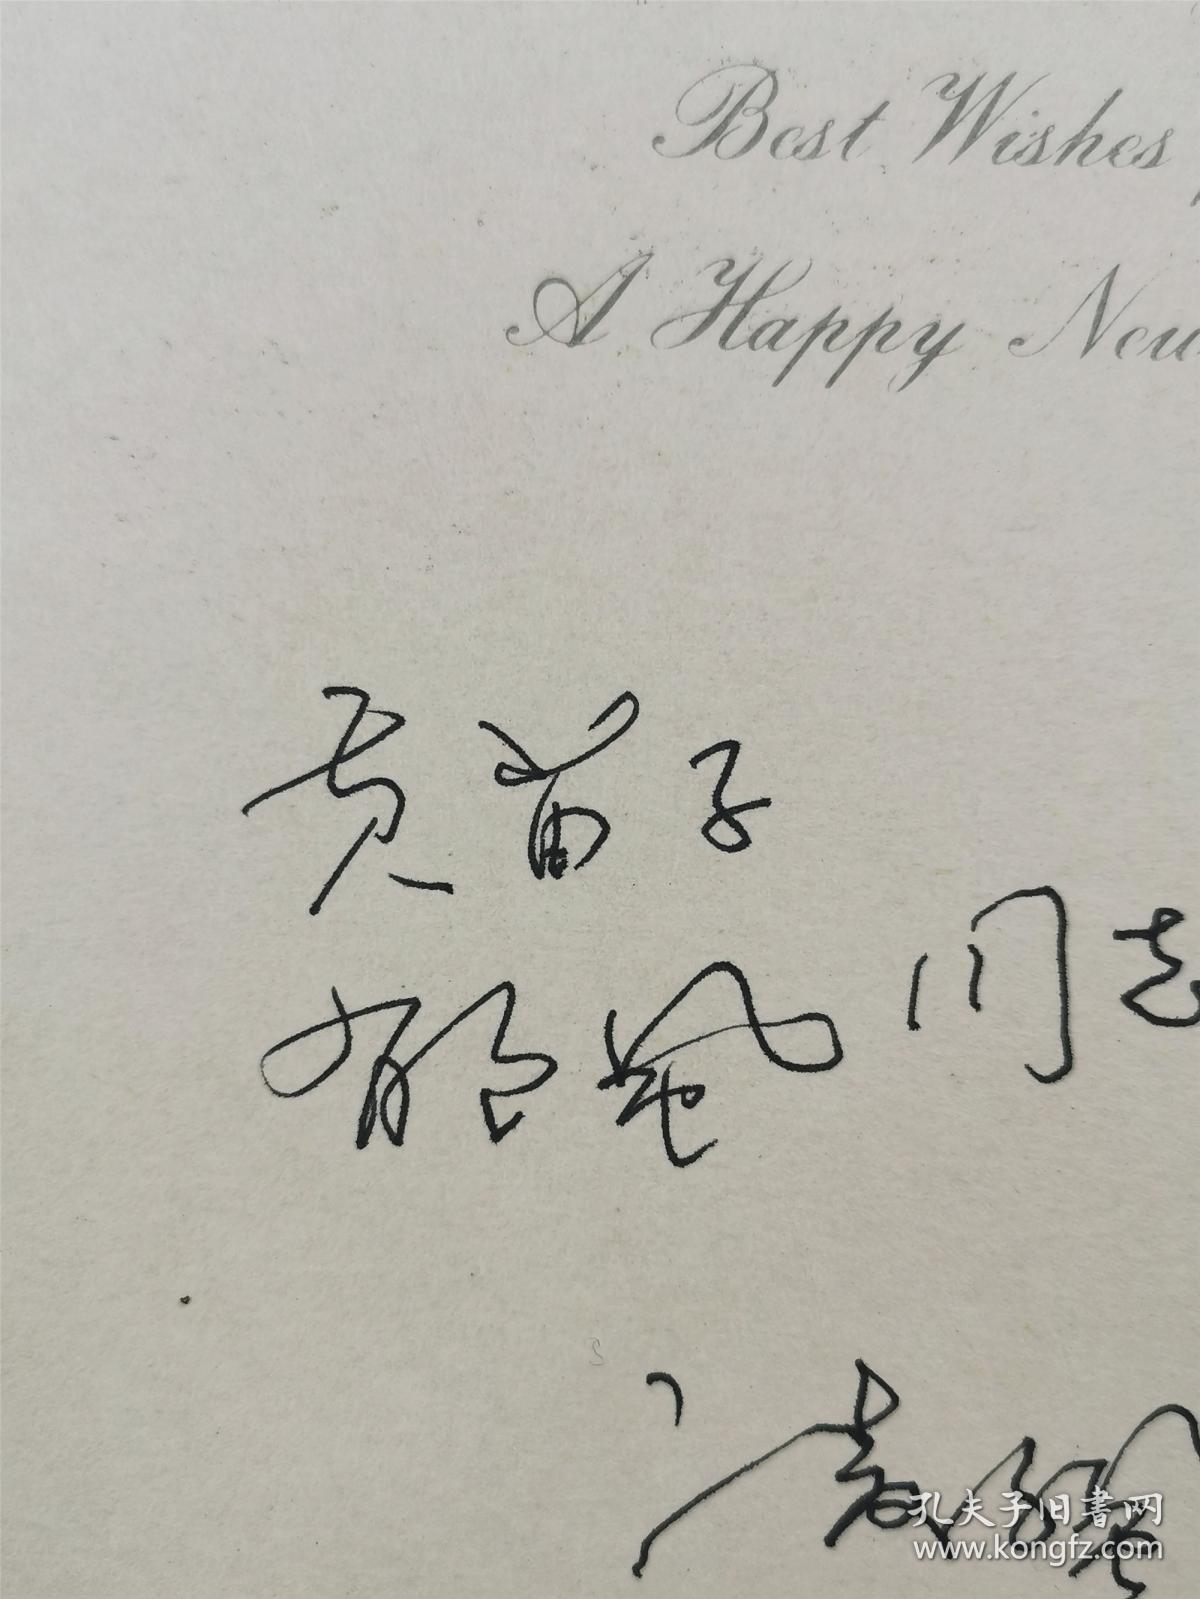 Best Wishes
A Happy New
黄苗子
郁风 同志
孔夫子旧書网
www.kongfz.com